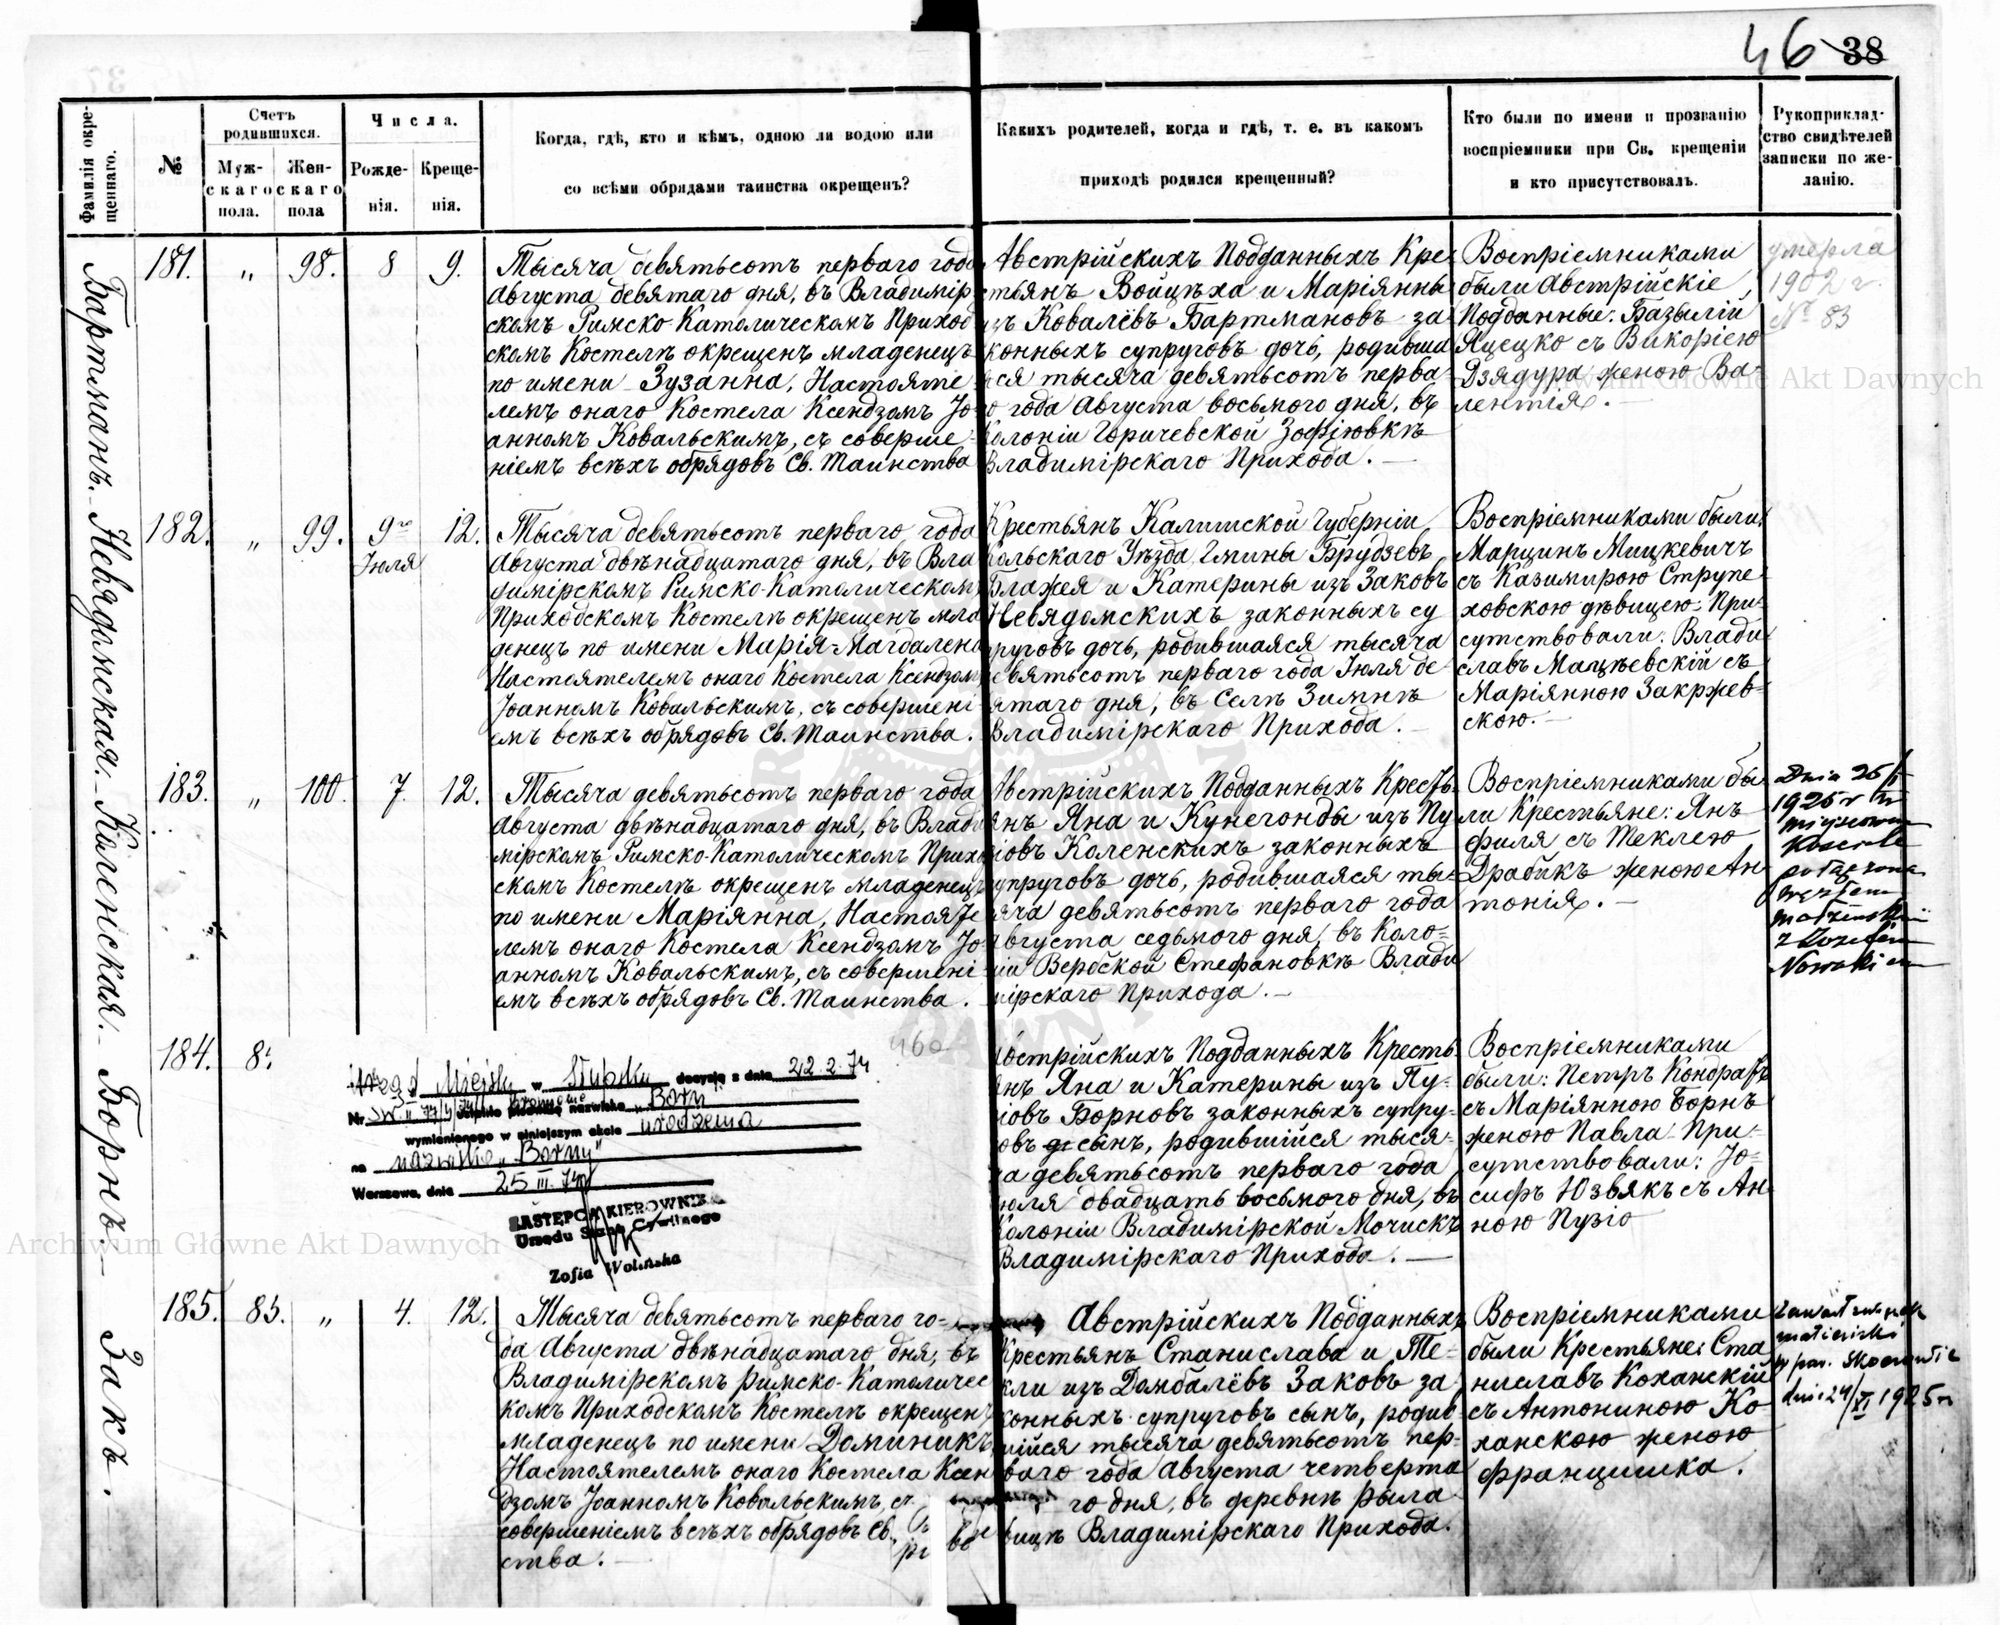 46 38
Фамилія окре-
щеннаго.
№
Счетъ
родившихся.
Муж-
скаго
пола.
Жен-
скаго
пола
Числа.
Рожде-
нія.
Креще-
нія.
Когда, гдѣ, кто и кѣмъ, одною ли водою или
со всѣми обрядами таинства окрещенъ?
Какихъ родителей, когда и гдѣ, т. е. въ какомъ
приходѣ родился крещенный?
Кто были по имени и прозванію
воспріемники при Св. крещеніи
и кто присутствовалъ.
Рукоприклад-
ство свидѣтелей
записки по же-
ланію.
Бартманъ. — Невядомская. — Коленская. — Борнъ. — Закъ.
181. „ 98. 8 9.
Тысяча девятьсотъ перваго года
Августа девятаго дня, въ Владимір
скомъ Римско-Католическомъ Приход
скомъ Костелѣ окрещенъ младенецъ
по имени Зузанна, Настояте
лемъ онаго Костела Ксендзомъ Іо
анномъ Ковальскимъ, съ соверше
ніемъ всѣхъ обрядовъ Св. Таинства
Австрійскихъ Подданныхъ Кре
стьянъ Войцѣха и Маріянны
изъ Ковалёвъ Бартмановъ за
конныхъ супруговъ дочь, родивша
яся тысяча девятьсотъ перва
го года Августа восьмого дня, въ
Колоніи Горичевской Зофіювкѣ
Владимірскаго Прихода. —
Воспріемниками
были Австрійскіе
Подданные: Базылій
Яцецко съ Викоріею
Дзядура женою Ва-
лентія. —
умерла
1902 г.
№ 83
182. „ 99. 9го Іюля 12.
Тысяча девятьсотъ перваго года
Августа двѣнадцатаго дня, въ Вла
димірскомъ Римско-Католическомъ
Приходскомъ Костелѣ окрещенъ мла
денецъ по имени Марія-Магдалена
Настоятелемъ онаго Костела Ксендзом
Іоанномъ Ковальскимъ, съ совершені
емъ всѣхъ обрядовъ Св. Таинства.
Крестьянъ Калишской Губерніи
Кольскаго Уѣзда, Гмины Брудзевъ
Блажея и Катерины изъ Заковъ
Невядомскихъ законныхъ су
пруговъ дочь, родившаяся тысяча
девятьсотъ перваго года Іюля де
вятаго дня, въ Селѣ Зимнѣ
Владимірскаго Прихода. —
Воспріемниками были:
Марцинъ Мицкевичъ
съ Казимирою Струпе
ховскою дѣвицею. При-
сутствовали: Влади
славъ Мацѣевскій съ
Маріянною Закржев-
скою. —
183. „ 100. 7. 12.
Тысяча девятьсотъ перваго года
Августа двѣнадцатаго дня, въ Влади
мірскомъ Римско-Католическомъ Приход
скомъ Костелѣ окрещенъ младенецъ
по имени Маріянна, Настояте
лемъ онаго Костела Ксендзомъ Іо
анномъ Ковальскимъ, съ совершені
емъ всѣхъ обрядовъ Св. Таинства.
Австрійскихъ Подданныхъ Кресть
янъ Яна и Кунегонды изъ Пу
зіовъ Коленскихъ законныхъ
супруговъ дочь, родившаяся ты
сяча девятьсотъ перваго года
Августа седьмого дня, въ Коло-
ніи Вербской Стефановкѣ Влади
мірскаго Прихода. —
Воспріемниками бы
ли Крестьяне: Янъ
Филя съ Теклею
Драбикъ женою Ан
тонія. —
Dnia 26/
1925 r w
miejscowym
Kosciele
połączona
węzłem
małżeńskim
z Józefem
Nowakiem
184. 8
46a
Urząd Miejski w Słupsku decyzją z dnia 22.2.74
Nr
nazwiska „Born”
wymienionego w niniejszym akcie urodzenia
na nazwisko „Borny”
Warszawa, dnia 25 III. 74
ZASTĘPCA KIEROWNIKA
Urzędu Stanu Cywilnego
Zofia Wolińska
Австрійскихъ Подданныхъ Кресть
янъ Яна и Катерины изъ Пу-
зіовъ Борновъ законныхъ супру-
говъ сынъ, родившійся тыся-
ча девятьсотъ перваго года
Іюля двадцать восьмого дня, въ
Колоніи Владимірской Мочискъ
Владимірскаго Прихода. —
Воспріемниками
были: Петръ Кондратъ
съ Маріянною Борнъ
женою Павла. При-
сутствовали: Іо-
сифъ Юзвякъ съ Ан-
ною Пузіо
185. 85. „ 4. 12.
Тысяча девятьсотъ перваго го-
да Августа двѣнадцатаго дня, въ
Владимірскомъ Римско-Католичес
комъ Приходскомъ Костелѣ окрещенъ
младенецъ по имени Доминикъ
Настоятелемъ онаго Костела Ксен
дзомъ Іоанномъ Ковальскимъ, съ
совершеніемъ всѣхъ обрядовъ Св.
ства. —
Австрійскихъ Подданныхъ
Крестьянъ Станислава и Те-
кли изъ Домбалёвъ Заковъ за
конныхъ супруговъ сынъ, родив
шійся тысяча девятьсотъ пер-
ваго года Августа четверта
го дня, въ деревнѣ Рыла
вицѣ Владимірскаго Прихода.
Воспріемниками
были Крестьяне: Ста
ниславъ Коханскій
съ Антониною Ко-
ханскою женою
Францишка.
Zawarł związek
małżeński
w par.
dnia 24/XI 1925 r
Archiwum Główne Akt Dawnych
Archiwum Główne Akt Dawnych